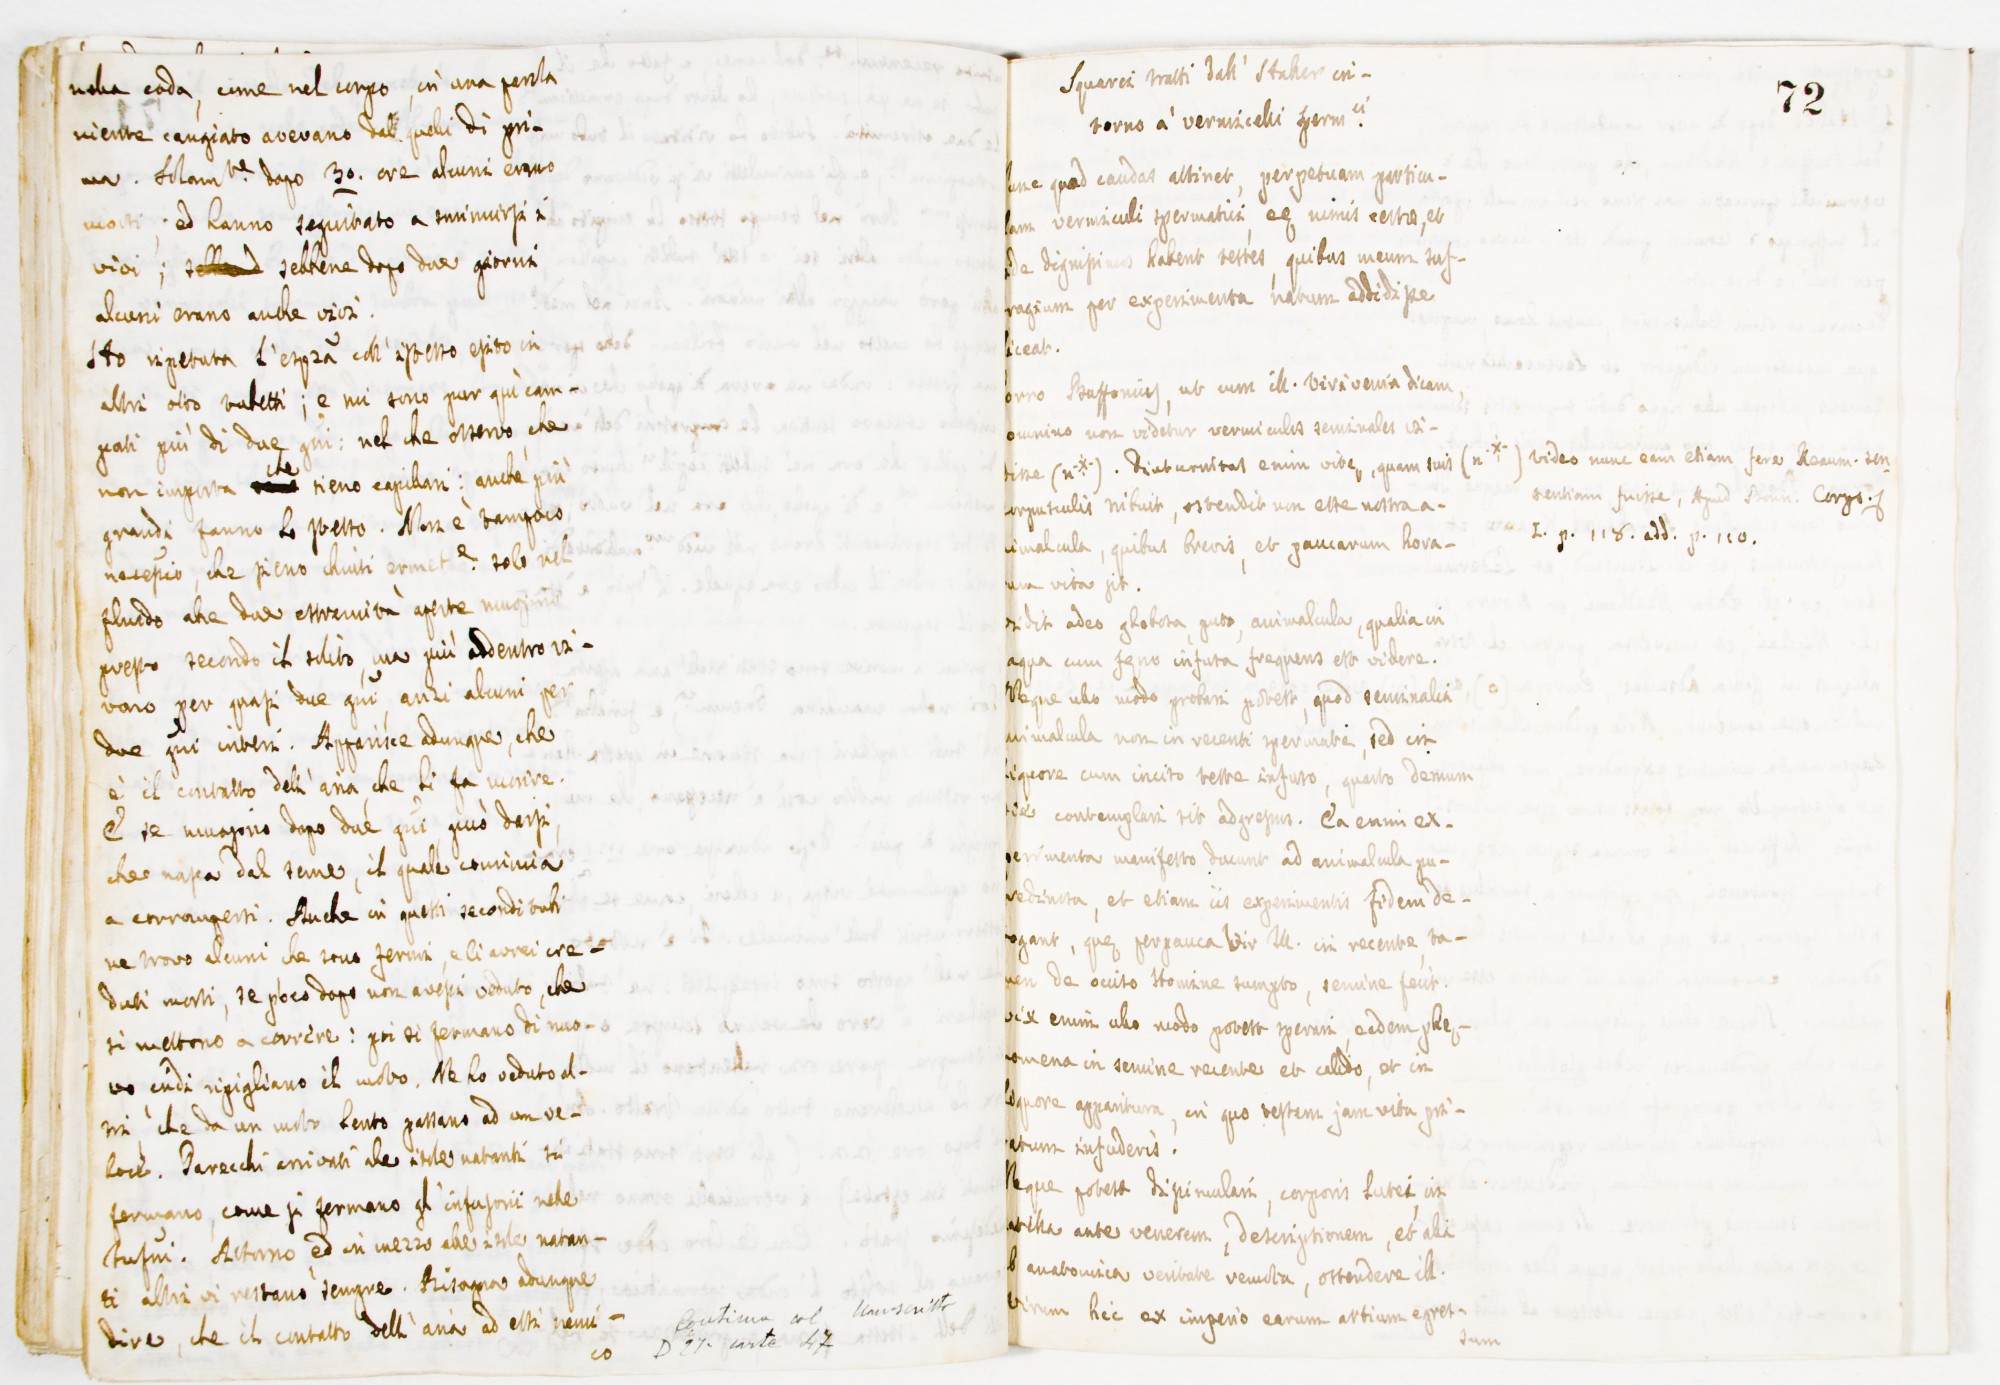 nella coda, come nel corpo, in una parola
niente cangiato avevano dalli quelli di pri-
ma. Solam.te dopo 30. ore alcuni erano
morti; ed hanno seguitato a sminuirsi i
vivi; sebbene dopo due giorni
alcuni erano anche vivi.
Ho ripetuta l'esp.za coll'istesso esito in
altri otto tubetti; e mi sono pur qui cam-
pati più di due gni: nel che osservo, che
non importa che sieno capillari: anche più
grandi fanno lo stesso. Non è tampoco
necessio, che sieno chiusi ermet.e solo nel
fluido alle due estremità aperte muojono
presto secondo il solito, ma più addentro vi-
vono per quasi due gni, anzi alcuni per
due gni interi. Apparisce adunque, che
è il contatto dell'aria, che li fa morire.
E se muojono dopo due gni, può darsi,
che nasca dal seme, il quale comincia
a corrompersi. Anche in questi secondi tubi
ne trovo alcuni che sono fermi, e li avrei cre-
duti morti, se poco dopo non avessi veduto, che
si mettono a correre: poi si fermano di nuo-
vo indi ripigliano il moto. Ne ho veduto al-
tri, che da un moto lento passano ad un ve-
loce. Parecchi arrivati alle isole natanti si
fermano, come si fermano gl'infusorii nelle
infusni. Attorno, ed in mezzo alle isole natan-
ti altri vi restano sempre. Bisogna adunque
dire, che il contatto dell'aria ad essi nemi-
co
Continua col Manoscritto
D 27. carte 47
72
Squarci tratti dall' Haller in-
torno a' vermicelli sperm.ci
Nunc quod caudas attinet, perpetuam particu-
lam vermiculi spermatici, eae nimis certos, et
fide dignissimos habent testes, quibus meum suf-
fragium per experimenta natum addidisse
liceat.
Porro Buffonius, ut cum ill. Viri venia dicam,
omnino non videtur vermiculos seminales vi-
disse (n-*-). Diuturnitas enim vitae, quam suis
corpusculis tribuit, ostendit non esse nostra a-
nimalcula, quibus brevis, et paucarum hora-
rum vita sit.
vidit adeo globosa, puto, animalcula, qualia in
aqua cum foeno infusa frequens est videre.
Neque ullo modo probari potest, quod seminalia
animalcula non in recenti spermate, sed in
liquore cum inciso teste infuso, quarto demum
die contemplari sit adgressus. Ea enim ex-
perimenta manifesto ducunt ad animalcula pu-
tredinosa, et etiam iis experimentis fidem de-
rogant, quae perpauca Vir Ill. in recente, ta-
men de occiso Homine sumpto, semine fecit.
Vix enim ullo modo potest sperari, eadem phae-
nomena in semine recente et calido, et in
liquore apparitura, in quo testem jam vita pri-
vatum infuderis.
Neque potest dissimulari, corporis lutei, in
vitella ante venerem, descriptionem, et alia
ab anatomica veritate remota, ostendere ill.
Virum hic ex imperio earum artium egres-
sum
(n-*-) video nunc eam etiam fere Reaum. sen-
tentiam fuisse, apud Bonn. Corps.
I. p. 118. add. p. 110.